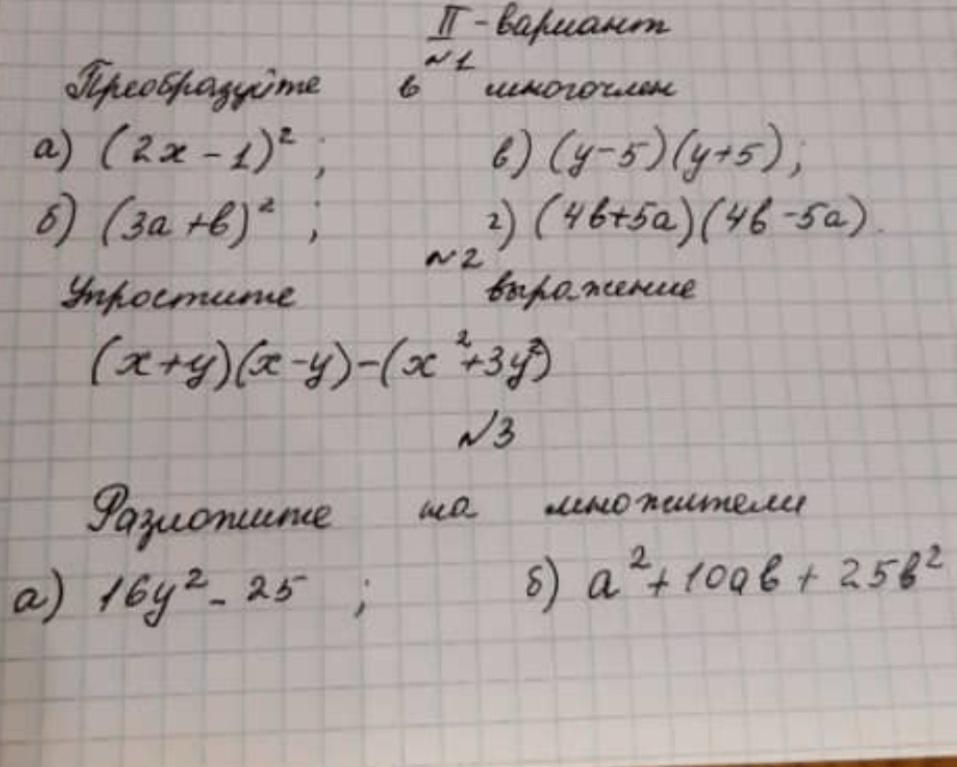 II - вариант
№1
Преобразуйте в многочлен
а) (2x - 1)²; в) (y-5)(y+5);
б) (3a + b)²; г) (4b+5a)(4b-5a).
№2
Упростите выражение
(x+y)(x-y)-(x²+3y²)
№3
Разложите на множители
а) 16y² - 25; б) a² + 10ab + 25b²